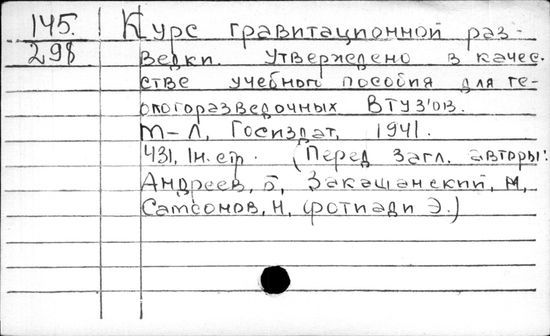 145.
298
Курс гравитационной раз-
ведки. Утверждено в качес-
стве учебного пособия для ге-
ологоразведочных ВТУЗ'ов.
М-Л, Госиздат, 1941.
431, 1н. стр. (Перед загл. авторы:
Андреев, Б, Закашанский, М,
Самсонов, Н, Фотиади Э.)